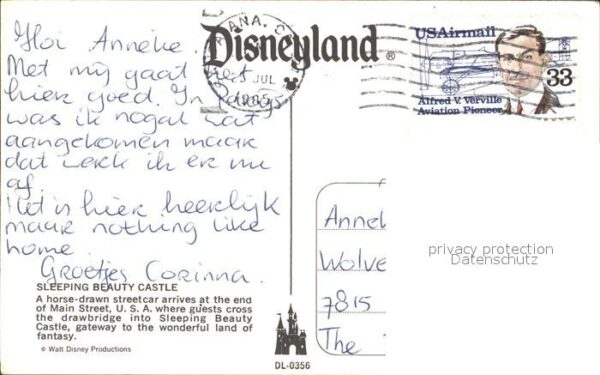 Hoi Anneke.
Met mij gaat het
hier goed. In
was ik nogal wat
aangekomen maar
dat werk ik er nu
af.
Het is hier heerlijk
maar nothing like
home.
Groetjes Corinna.
Disneyland®
ANA, C
25 JUL
USAirmail
33
Alfred V. Verville
Aviation Pioneer
Annek
Wolve
7815
The
privacy protection
Datenschutz
SLEEPING BEAUTY CASTLE
A horse-drawn streetcar arrives at the end
of Main Street, U. S. A. where guests cross
the drawbridge into Sleeping Beauty
Castle, gateway to the wonderful land of
fantasy.
© Walt Disney Productions
DL-0356